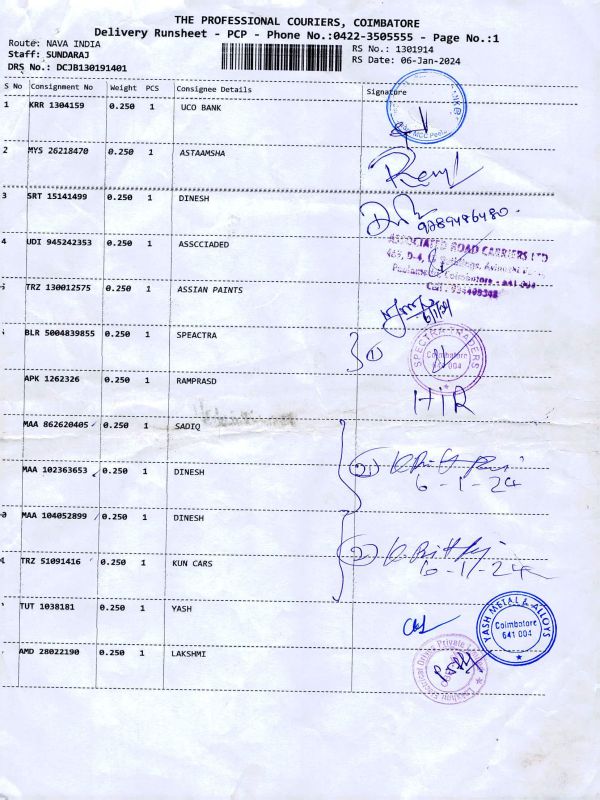 THE PROFESSIONAL COURIERS, COIMBATORE
Delivery Runsheet - PCP - Phone No.:0422-3505555 - Page No.:1
Route: NAVA INDIA
Staff: SUNDARAJ
DRS No.: DCJB130191401
RS No.: 1301914
RS Date: 06-Jan-2024
S No Consignment No Weight PCS Consignee Details Signature
1 KRR 1304159 0.250 1 UCO BANK
2 MYS 26218470 0.250 1 ASTAAMSHA
3 SRT 15141499 0.250 1 DINESH
9789486480
4 UDI 945242353 0.250 1 ASSCCIADED
ASSOCIATED ROAD CARRIERS LTD
TRZ 130012575 0.250 1 ASSIAN PAINTS
6/1/24
BLR 5004839855 0.250 1 SPEACTRA
1
SPECTRA TRADERS
Coimbatore
641 004
APK 1262326 0.250 1 RAMPRASD
HIR
MAA 862620405 0.250 1 SADIQ
MAA 102363653 0.250 1 DINESH
6-1-24
MAA 104052899 0.250 1 DINESH
2
TRZ 51091416 0.250 1 KUN CARS
6-1-24
TUT 1038181 0.250 1 YASH
YASH METAL & ALLOYS
Coimbatore
641 004
AMD 28022190 0.250 1 LAKSHMI